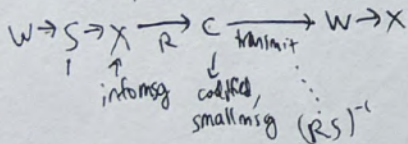 W → S → X → C → W → X
R transmit
infomsg codified,
smallmsg (RS)⁻¹